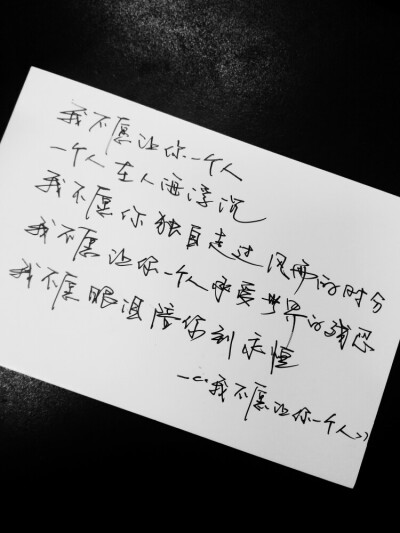 我不愿让你一个人
一个人在人海浮沉
我不愿你独自走过风雨的时分
我不愿让你一个人承受世界的残忍
我不愿眼泪陪你到永恒
—《我不愿让你一个人》